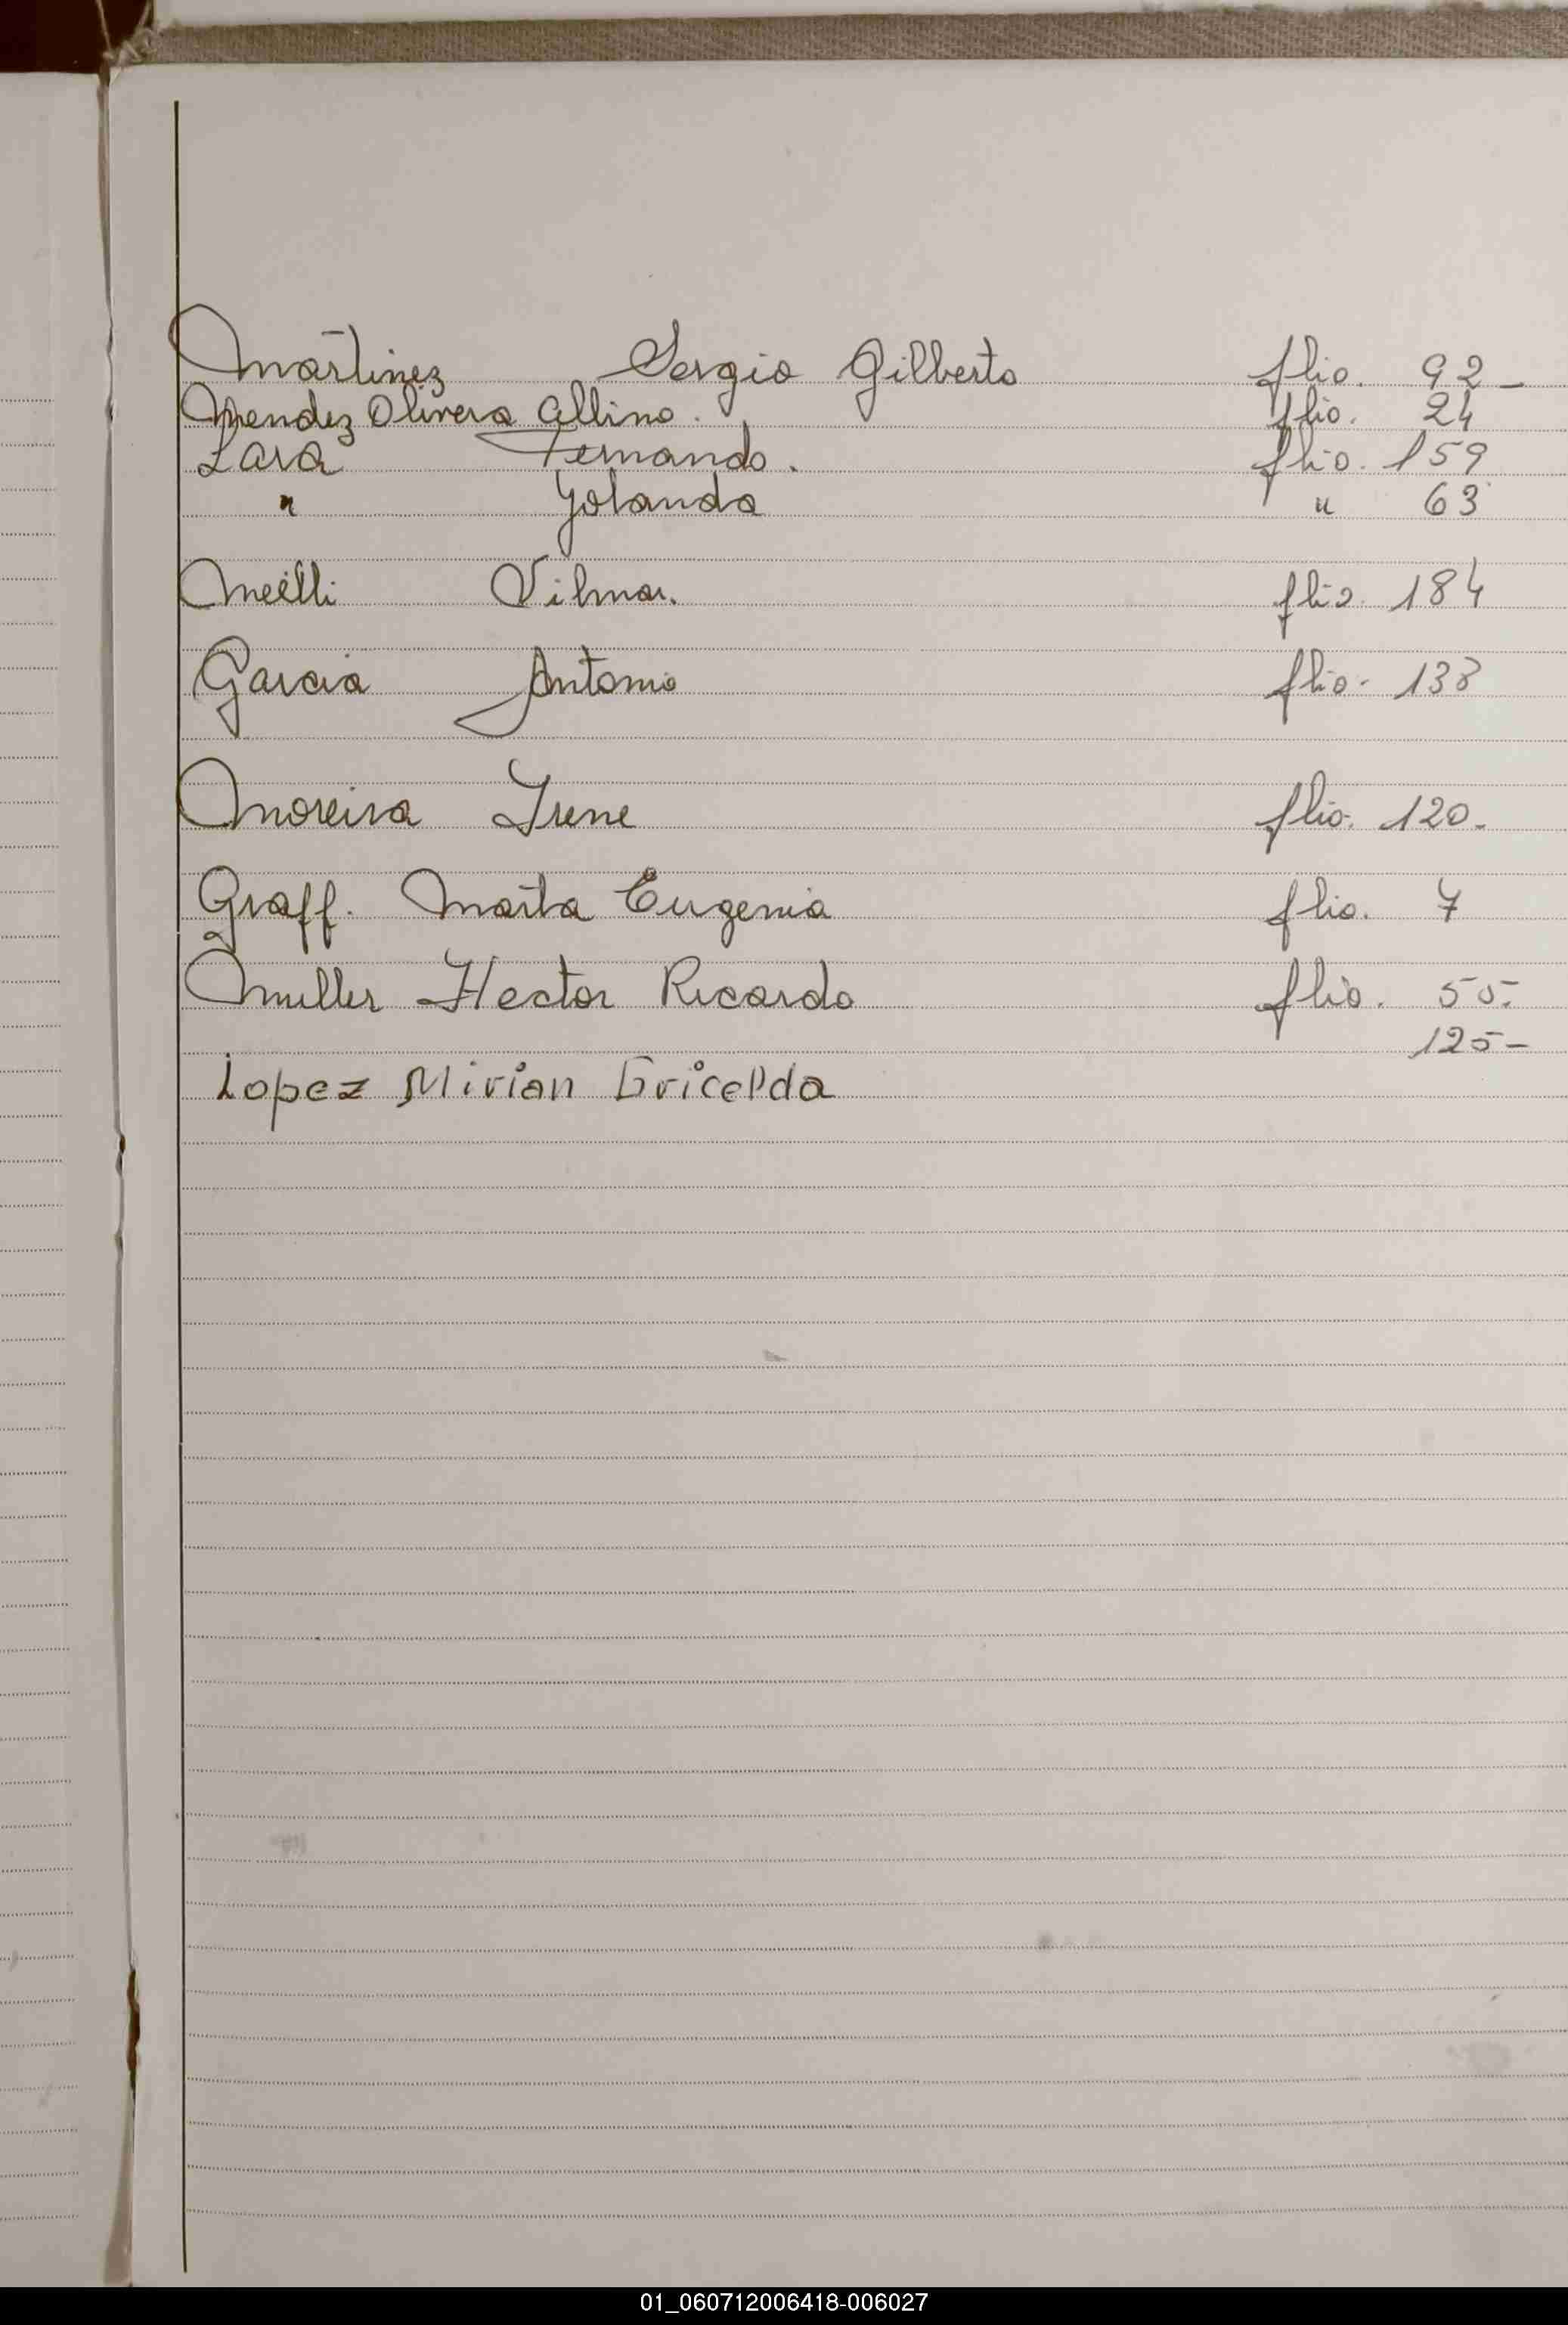 Martinez Sergio Gilberto flio. 92-
Mendez Olivera Albino. flio. 24
Lara Fernando. flio. 159
" Yolanda " 63
Vilmar. flio. 184
Garcia Antonio flio. 138
Moreira Irene flio. 120.
Graff. Marta Eugenia flio. 7
Muller Hector Ricardo flio. 55-
125-
Lopez Mirian Gricelda
01_060712006418-006027